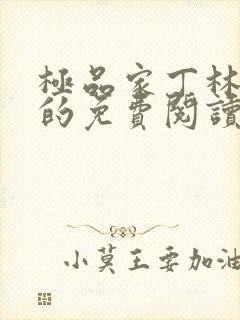 極品家丁林
的免費閱讀
小莫王要加油